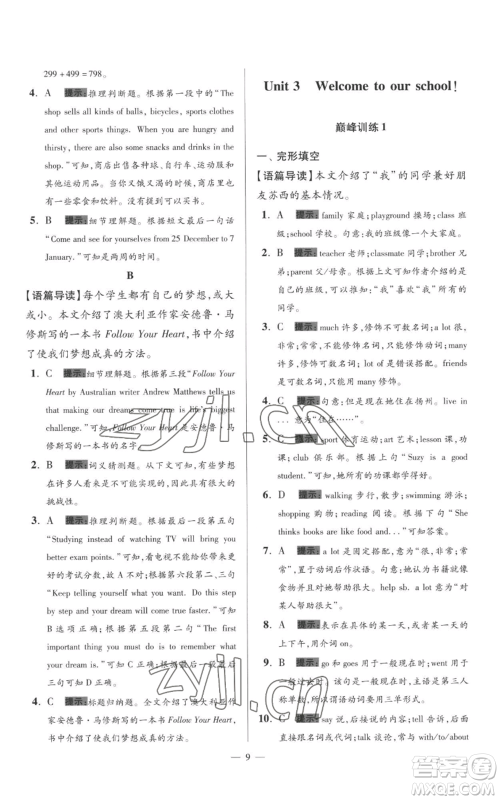 299+499=798。
4. A 提示:推理判断题。根据第一段“The
shop sells all kinds of balls, bicycles, sports clothes
and other sports things. When you are hungry and
thirsty, there are also some snacks and drinks in
it.”可知,商店出售各种球、自行车、运动服和
其他运动用品。当你又饿又渴的时候,商店也
有一些零食和饮料。可知。
5. B 提示:细节理解题。根据短文最后一句话
“Come and see for yourselves from 25 December to 7
January.”可知是两周的时间。
B
【语篇导读】每个学生都有自己的梦想,或大
或小。本文介绍了澳大利亚作家安德鲁·马
修斯写的一本书Follow Your Heart,书中介绍
了使我们梦想成真的方法。
1. C 提示:细节理解题。根据第三段“Follow
Your Heart by Australian writer Andrew Matthews
tells us that making our dreams come true is life's biggest
challenge.”可知Follow Your Heart是安德鲁·马
修斯写的一本书的名字。
2. B 提示:词义猜测题。从下文可知,有些梦想
在许多人看来是不可实现的,是具有很大的
挑战性。
3. A 提示:推理判断题。根据最后第五句
“Studying instead of watching TV will bring you
better exam points.”可知,看电视不能给你带来更
好的考试分数,因此A不对;根据第六段第二句
“Keep telling yourself what you want. Do this step
by step and your dream will come true faster.”可知
B选项正确;根据第五段第二句“The first
important thing you must do is to remember what
your dream is.”可知C正确;根据最后一段第二
句可知D正确。
4. C 提示:标题归纳题。全文介绍了澳大利亚作家
安德鲁·马修斯写的一本书Follow Your Heart,
书中介绍了使我们梦想成真的方法。
Unit 3 Welcome to our school!
巅峰训练1
一、完形填空
【语篇导读】本文介绍了“我”的同学兼好朋
友苏西的基本情况。
1. A 提示:family 家庭;playground 操场;city 城
市;school 学校。句意:我来自一个大家庭。
2. B 提示:teacher 老师;classmate 同学;brother 兄
弟;parent 父/母亲。句意:我的大多数同班同学
和“我”一样。
3. C 提示:much 许多,修饰不可数名词;a lot 很,
非常;常常,不能修饰名词;many 许多,修饰可数
名词的复数;a lot of 是错误搭配。根据空格后的
of可知用many修饰。
4. C 提示:句意:我和我的爸爸妈妈住在扬州。live
in ... 意为“住在……”。
5. C 提示:sport 体育运动;art 艺术;lesson 课,功
课;club 俱乐部。根据下文中的“Suzy is a good
student.”可知,她所有的功课都学得好。
6. D 提示:walking 步行,散步;swimming 游泳;
shopping 购物;reading 阅读。根据下句“She
thinks books are like food for her.”可知答案。
7. A 提示:a lot 是程度副词,意为“很,非常;常
常”,放于动词后作状语。句意:她认为书籍就像食
物一样,给她很大的帮助。help sb. a lot 意为“对
某人帮助很大”。
8. D 提示:表示在某一天或者具体的某一天,或某天
上午、下午,用介词on。
9. B 提示:go和goes用于一般现在时;went用于
一般过去时。本句是一般现在时,主语是第三人
称单数,所以动词要用三单形式。
10. C 提示:say 说,后接说的内容;tell 告诉,后接间
接宾语或代词;talk 谈论,谈话,常与with/to/about
9
zyjl.cn
zyjl.cn